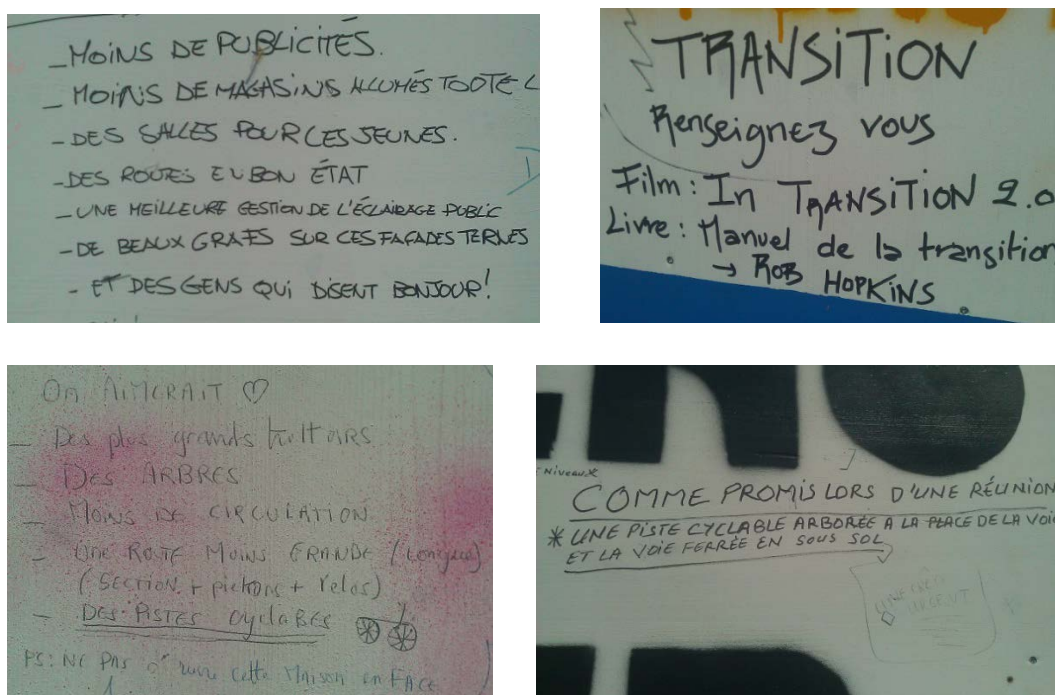 _ MOINS DE PUBLICITÉS.
_ MOINS DE MAGASINS ALLUMÉS TOOTE L
- DES SALLES POUR CES JEUNES.
- DES ROUTES EN BON ÉTAT
- UNE MEILLEURE GESTION DE L'ÉCLAIRAGE PUBLIC
- DE BEAUX GRAFS SUR CES FAÇADES TERNES
- ET DES GENS QUI DISENT BONJOUR!
TRANSITION
Renseignez vous
Film : In TRANSITION 2.0
Livre : Manuel de la transition
→ ROB HOPKINS
On AIMERAIT ♡
- Des plus grands trottoirs
- DES ARBRES
- MOINS DE CIRCULATION
- UNE ROUTE MOINS GRANDE
(SECTION + pietons + velos)
- DES PISTES CyclaBES
PS: NE PAS cette MAISON en FACE
NIVEAUX
COMME PROMIS LORS D'UNE RÉUNION
* UNE PISTE CYCLABLE ARBORÉE A LA PLACE DE LA VOIE
ET LA VOIE FERRÉE EN SOUS SOL